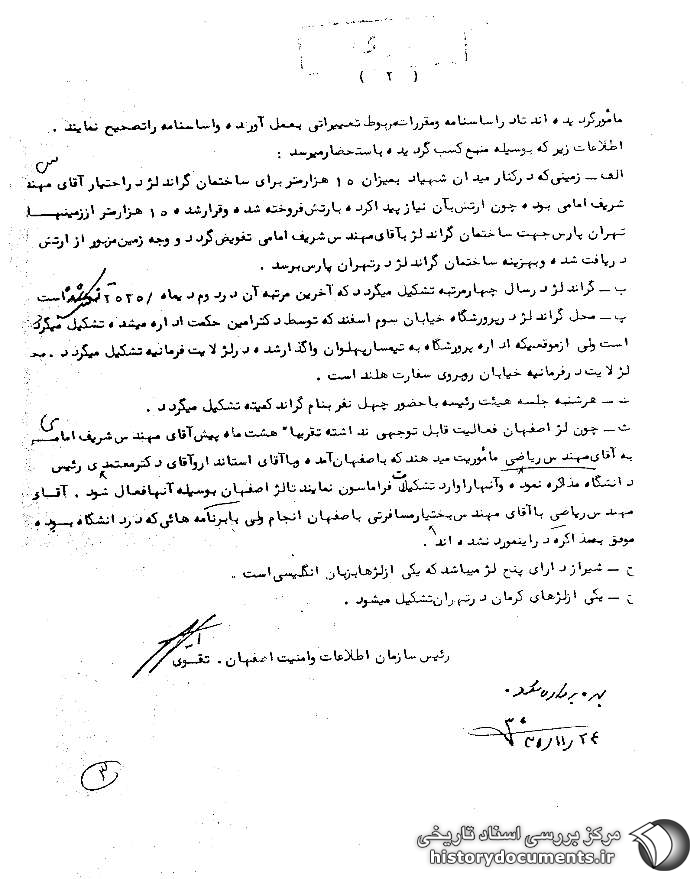 ( ۲ )
مأمور گردیده اند تا در اساسنامه ومقررات مربوط تغییراتی بعمل آورده واساسنامه راتصحیح نمایند .
اطلاعات زیر که بوسیله منبع کسب گردیده باستحضار میرسد :
الف ـ زمینی که در کنار میدان شهیاد بمیزان ۱۵ هزارمتر برای ساختمان گراند لژ در اختیار آقای مهندس
شریف امامی بوده چون ارتش بآن نیاز پیدا کرده بارتش فروخته شده وقرارشده ۱۵ هزارمتر اززمینهای
تهران پارس جهت ساختمان گراند لژ بآقای مهندس شریف امامی تفویض گردد و وجه زمین مزبور از ارتش
دریافت شده وبهزینه ساختمان گراند لژ درتهران پارس برسد .
ب ـ گراند لژ در سال چهارمرتبه تشکیل میگردد که آخرین مرتبه آن در دوم دیماه /۲۵۳۵ است
پ ـ محل گراند لژ در پرورشگاه خیابان سوم اسفند که توسط دکترامین حکمت اداره میشده تشکیل میگرد
است ولی ازموقعیکه اداره پرورشگاه به تیمسارپهلوان واگذارشده در لژ لایت فرمانیه تشکیل میگردد . محـ
لژ لایت در فرمانیه خیابان روبروی سفارت هلند است .
ت ـ هرشنبه جلسه هیئت رئیسه باحضور چهل نفر بنام گراند کمیته تشکیل میگردد .
ث ـ چون لژ اصفهان فعالیت قابل توجهی نداشته تقریبا" هشت ماه پیش آقای مهندس شریف امامی
به آقای مهندس ریاضی مأموریت میدهند که باصفهان آمده وباآقای استاندار وآقای دکترمعتمدی رئیس
دانشگاه مذاکره نموده وآنهاراوارد تشکیلات فراماسون نمایند تالژ اصفهان بوسیله آنهافعال شود . آقای
مهندس ریاضی باآقای مهندس بختیارمسافرتی باصفهان انجام ولی بابرنامه هائی که در دانشگاه بوده
موفق بمذاکره دراینمورد نشده اند .
ج ـ شیراز دارای پنج لژ میباشد که یکی ازلژهابزبان انگلیسی است .
ح ـ یکی ازلژهای کرمان درتهران تشکیل میشود .
رئیس سازمان اطلاعات وامنیت اصفهان . تقوی
بهره برداری شد .
۳۵/۱۱/۲۴
۳
مرکز بررسی اسناد تاریخی
historydocuments.ir